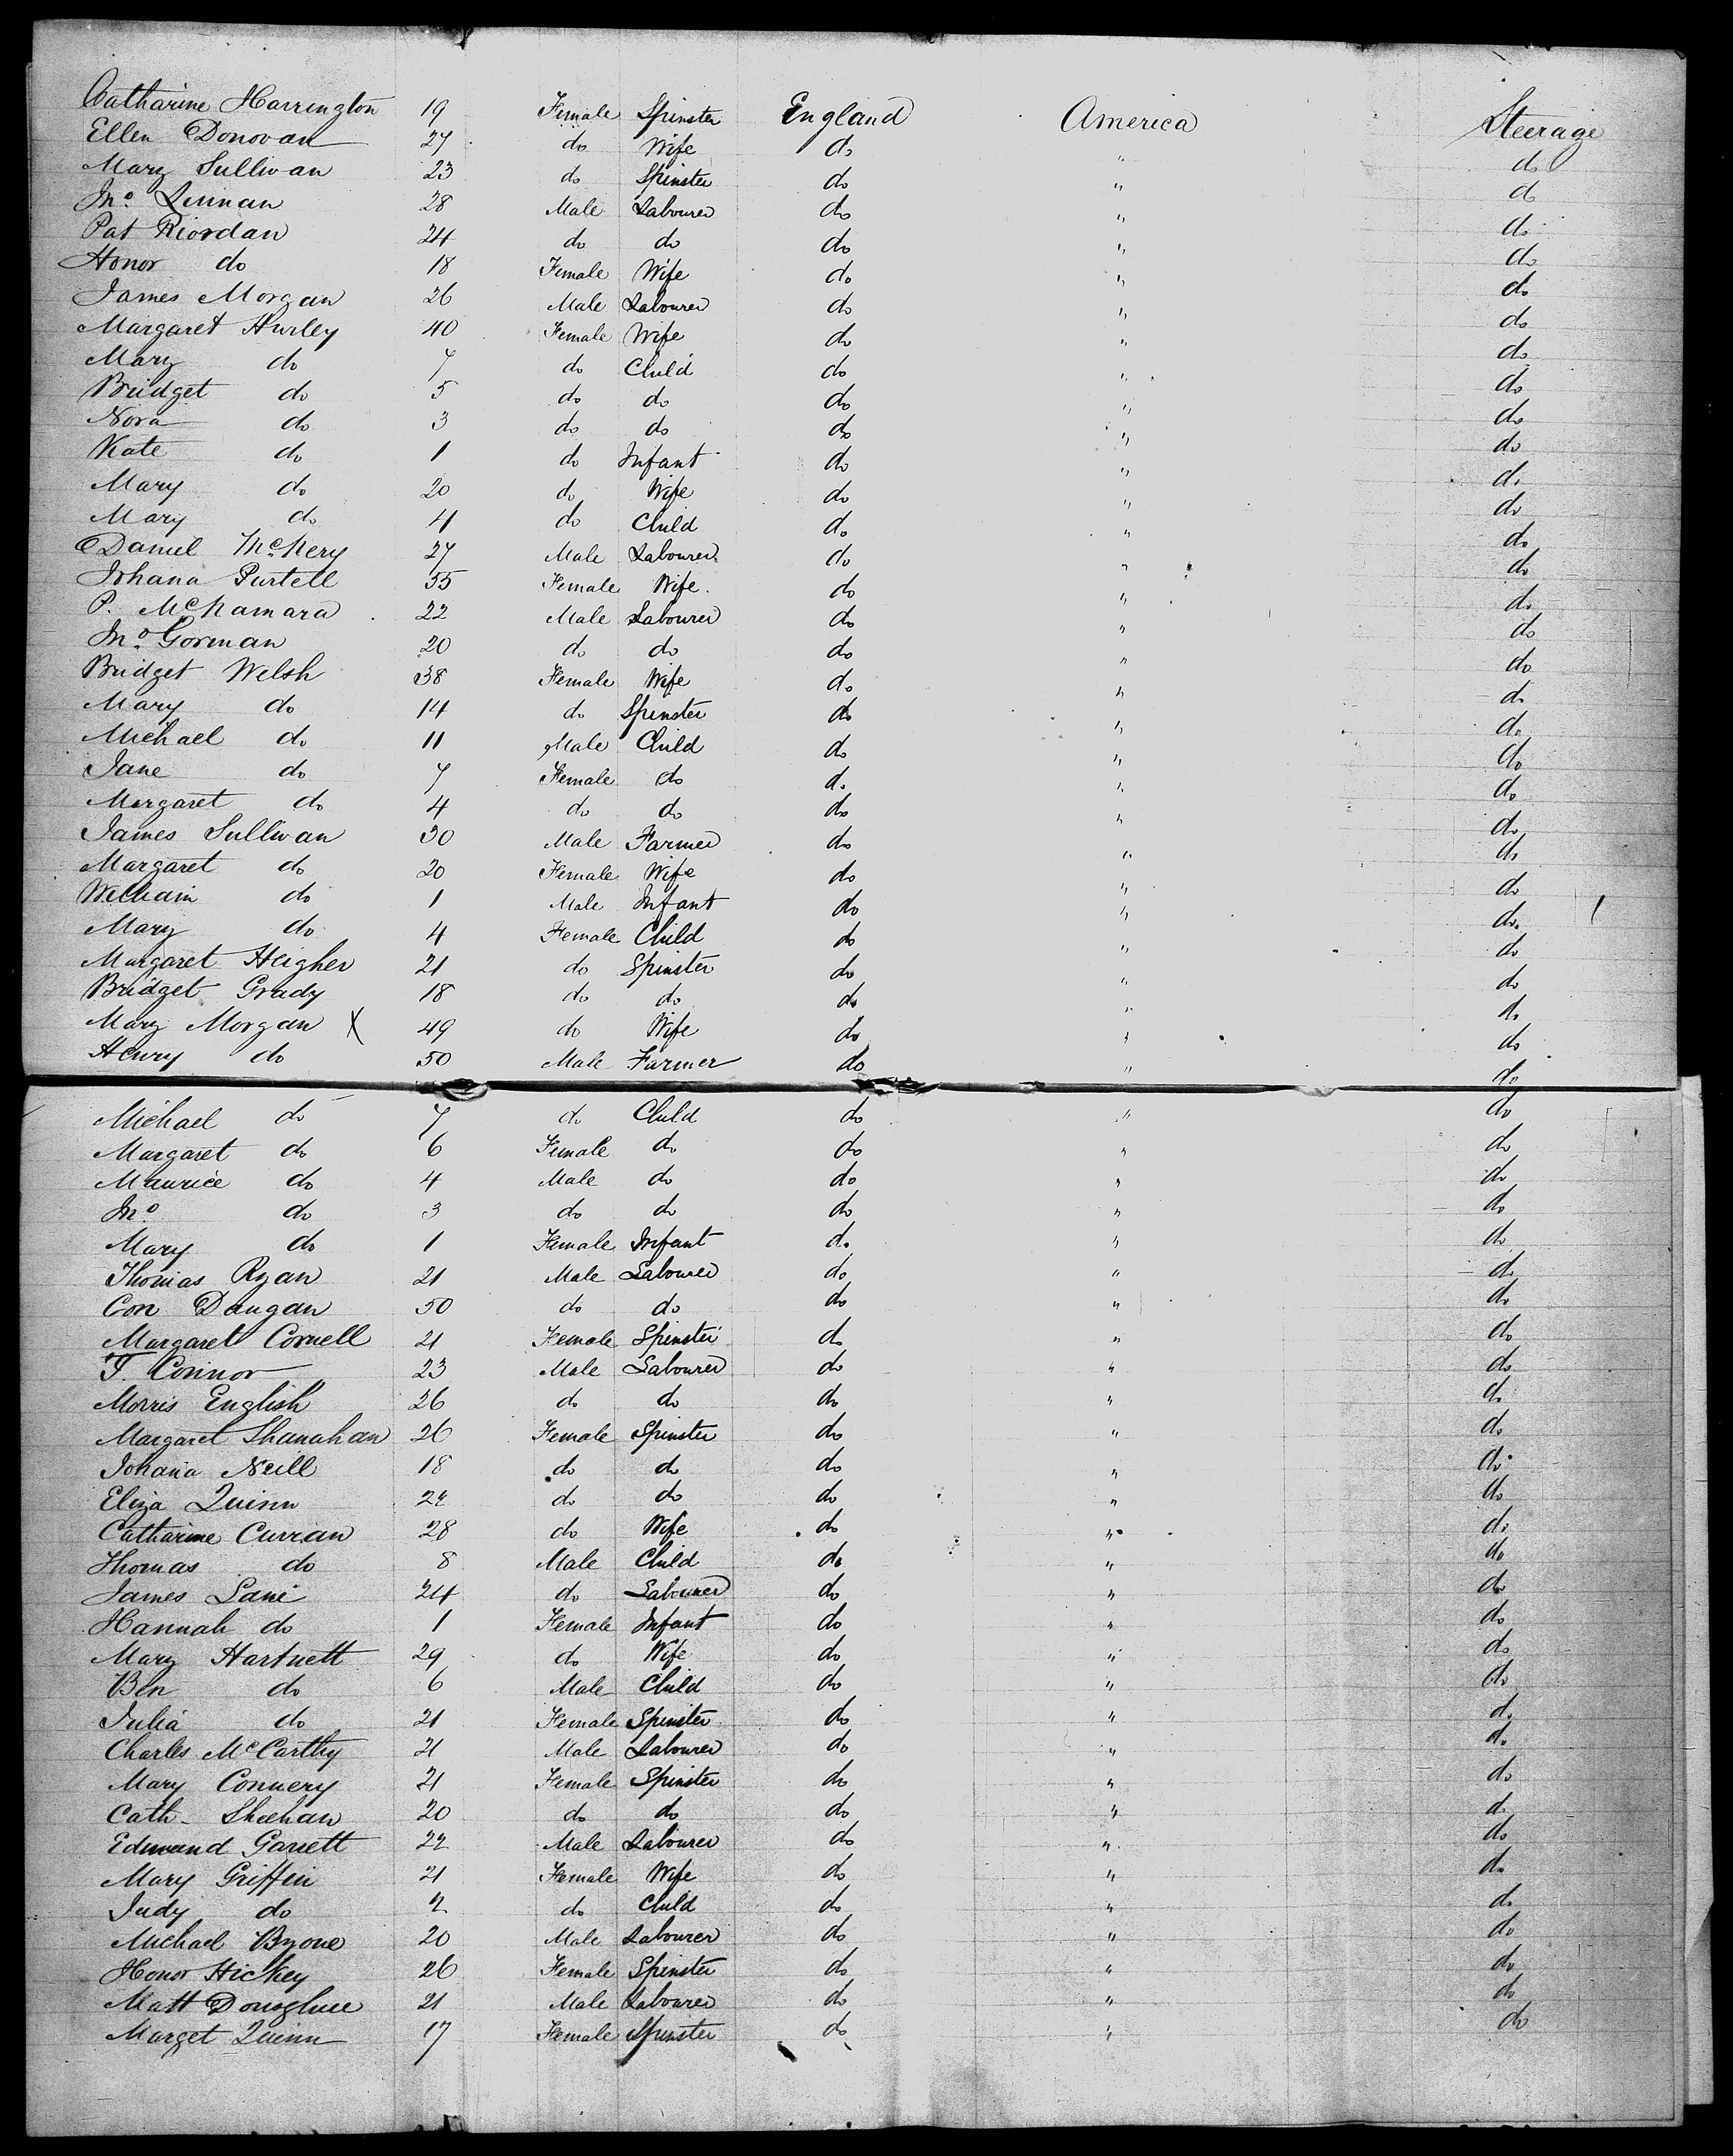 Catharine Harrington 19 Female Spinster England America Steerage
Ellen Donovan 27 do Wife do " do
Mary Sullivan 23 do Spinster do " do
Jno. Linnan 28 Male Labourer do " do
Pat Riordan 24 do do do " do
Honor do 18 Female Wife do " do
James Morgan 26 Male Labourer do " do
Margaret Hurley 40 Female Wife do " do
Mary do 7 do Child do " do
Bridget do 5 do do do " do
Nora do 3 do do do " do
Kate do 1 do Infant do " do
Mary do 20 do Wife do " do
Mary do 4 do Child do " do
Daniel McNery 27 Male Labourer do " do
Johana Purtell 55 Female Wife do " do
P. McNamara 22 Male Labourer do " do
Jno. Gorman 20 do do do " do
Bridget Welsh 38 Female Wife do " do
Mary do 14 do Spinster do " do
Michael do 11 Male Child do " do
Jane do 7 Female do do " do
Margaret do 4 do do do " do
James Sullivan 30 Male Farmer do " do
Margaret do 20 Female Wife do " do
William do 1 Male Infant do " do
Mary do 4 Female Child do " do
Margaret Heigher 21 do Spinster do " do
Bridget Grady 18 do do do " do
Mary Morgan X 49 do Wife do " do
Henry do 50 Male Farmer do " do
Michael do 7 do Child do " do
Margaret do 6 Female do do " do
Maurice do 4 Male do do " do
Jno do 3 do do do " do
Mary do 1 Female Infant do " do
Thomas Ryan 21 Male Labourer do " do
Con Dungan 50 do do do " do
Margaret Cornell 21 Female Spinster do " do
T. Connor 23 Male Labourer do " do
Morris English 26 do do do " do
Margaret Shanahan 26 Female Spinster do " do
Johana Neill 18 do do do " do
Eliza Quinn 22 do do do " do
Catharine Curran 28 do Wife do " do
Thomas do 8 Male Child do " do
James Lane 24 do Labourer do " do
Hannah do 1 Female Infant do " do
Mary Hartnett 29 do Wife do " do
Ben do 6 Male Child do " do
Julia do 21 Female Spinster do " do
Charles McCarthy 21 Male Labourer do " do
Mary Connery 21 Female Spinster do " do
Cath. Sheehan 20 do do do " do
Edmund Garrett 22 Male Labourer do " do
Mary Griffin 21 Female Wife do " do
Judy do 2 do Child do " do
Michael Byone 20 Male Labourer do " do
Honor Hickey 26 Female Spinster do " do
Matt Donoghue 21 Male Labourer do " do
Marget Quinn 17 Female Spinster do " do